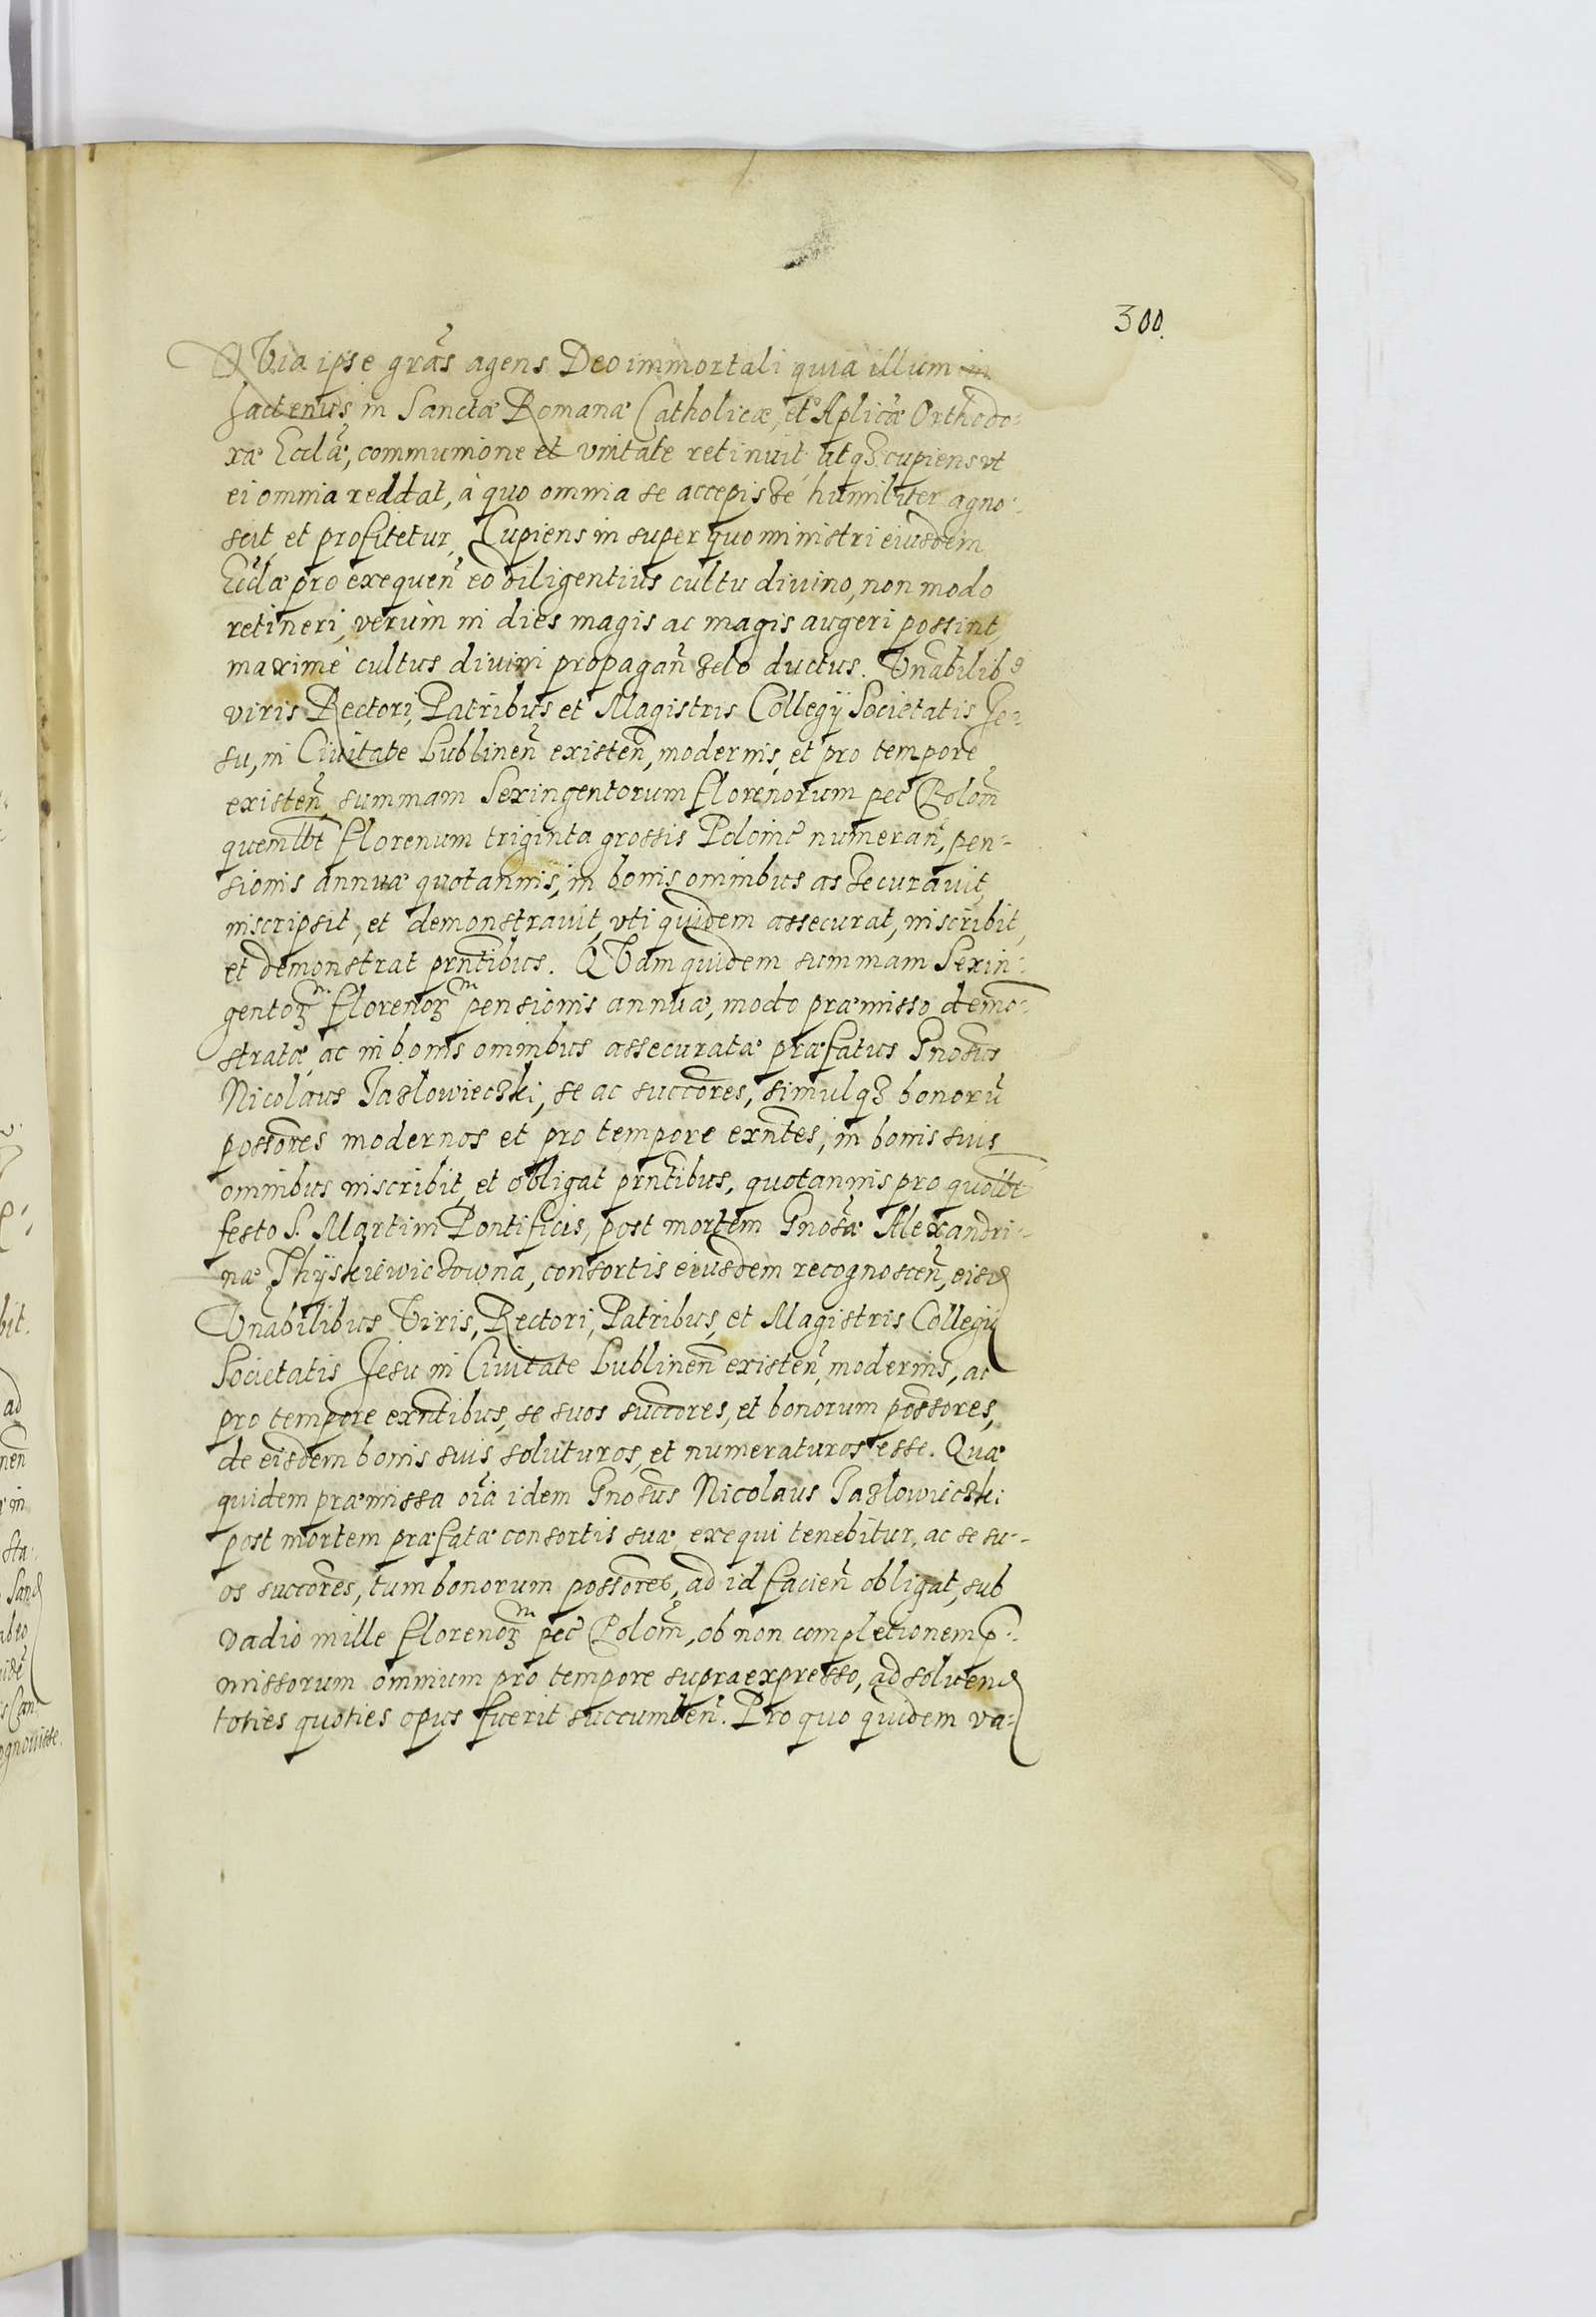 300.
QVia ipse grãs agens Deo immortali quia illum in
hactenus in Sanctæ Romanæ Catholicæ, et Aplicæ Orthodo-
xæ Ecclæ, communione et vnitate retinuit atqʒ cupiens vt
ei omnia reddat, à quo omnia se accepisse humiliter agno-
scit, et profitetur, Cupiens insuper quo ministri eiusdem
Ecclæ pro exequeñ eo diligentius cultu diuino, non modo
retineri, verùm in dies magis ac magis augeri possint
maximè cultus diuini propagañ zelo ductus. Vnabilibꝰ
viris Rectori, Patribus et Magistris Collegÿ Societatis Je-
su, in Ciuitate Lublineñ existeñ, modernis, et pro tempore
existeñ, summam Sexingentorum florenorum pec̃ Poloñ
quemlbt florenum triginta grossis Polonic̃ numerañ, pen-
sionis annuæ quotannis, in bonis omnibus assecurauit,
inscripsit, et demonstrauit, vti quidem assecurat, inscribit,
et demonstrat pr̃ntibus. QVam quidem summam Sexin-
gentoꝝm florenoꝝm pensionis annuæ, modo præmisso demõ-
stratæ, ac in bonis omnibus assecuratæ præfatus Gnosus
Nicolaus Jazlowieczki, se ac succores, simulqʒ bonorũ
possores modernos et pro tempore exñtes, in bonis suis
omnibus inscribit, et obligat pr̃ntibus, quotannis pro quolbt
festo S. Martini Pontificis, post mortem Gnosæ Alexandri-
næ Thÿskiewiczowna, consortis eiusdem recognosceñ, eisd
Vnabilibus Viris, Rectori, Patribus, et Magistris Collegÿ
Societatis Jesu in Ciuitate Lublineñ existeñ, modernis, ac
pro tempore exñtibus, se suos succores, et bonorum possores,
de eisdem bonis suis soluturos, et numeraturos esse. Quæ
quidem præmissa oĩa idem Gnosus Nicolaus Jazlowieczki
post mortem præfatæ consortis suæ exequi tenebitur, ac se su-
os succores, tum bonorum possores, ad id facieñ obligat, sub
vadio mille florenoꝝm pec̃ Poloñ, ob non completionem p̃-
missorum omnium pro tempore supraexpresso, adsoluend
toties quoties opus fuerit succumbeñ. Pro quo quidem va-